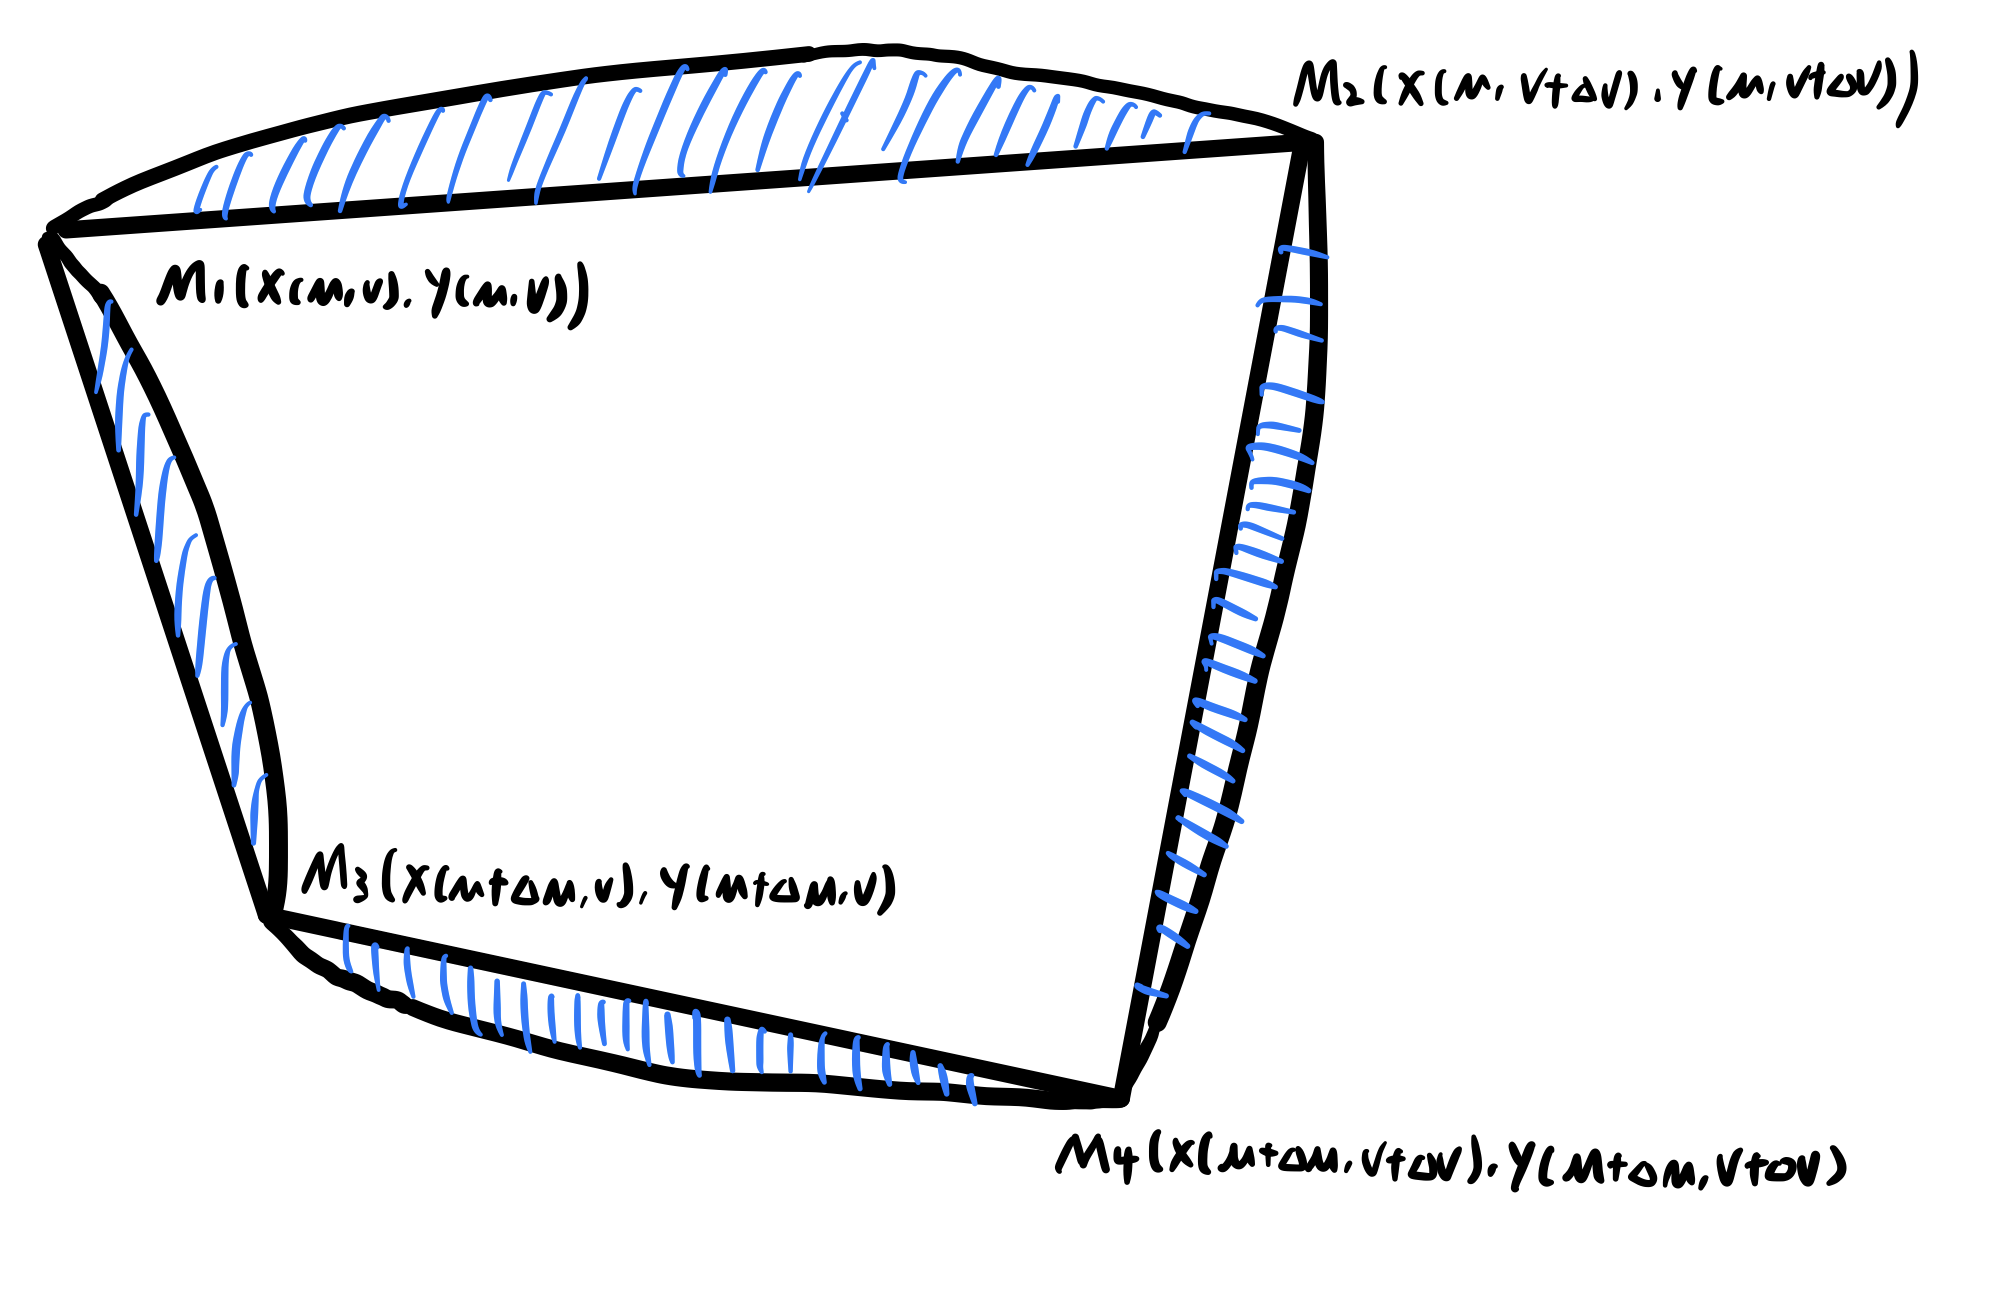 M2(X(u, V+ΔV), Y(u, V+ΔV))
M1(X(u,v), Y(u,v))
M3(X(u+Δu, v), Y(u+Δu, v)
M4(X(u+Δu, V+ΔV), Y(u+Δu, V+ΔV)